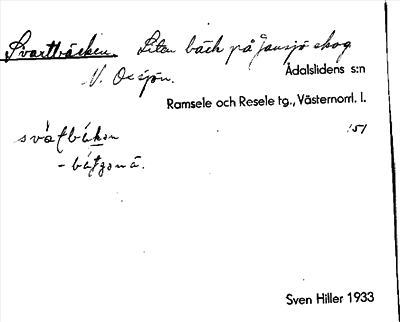 Svartbäcken. Liten bäck på Jansjö skog
N. Oxsjön.
Ådalslidens s:n
Ramsele och Resele tg., Västernorrl. l.
151
Sven Hiller 1933